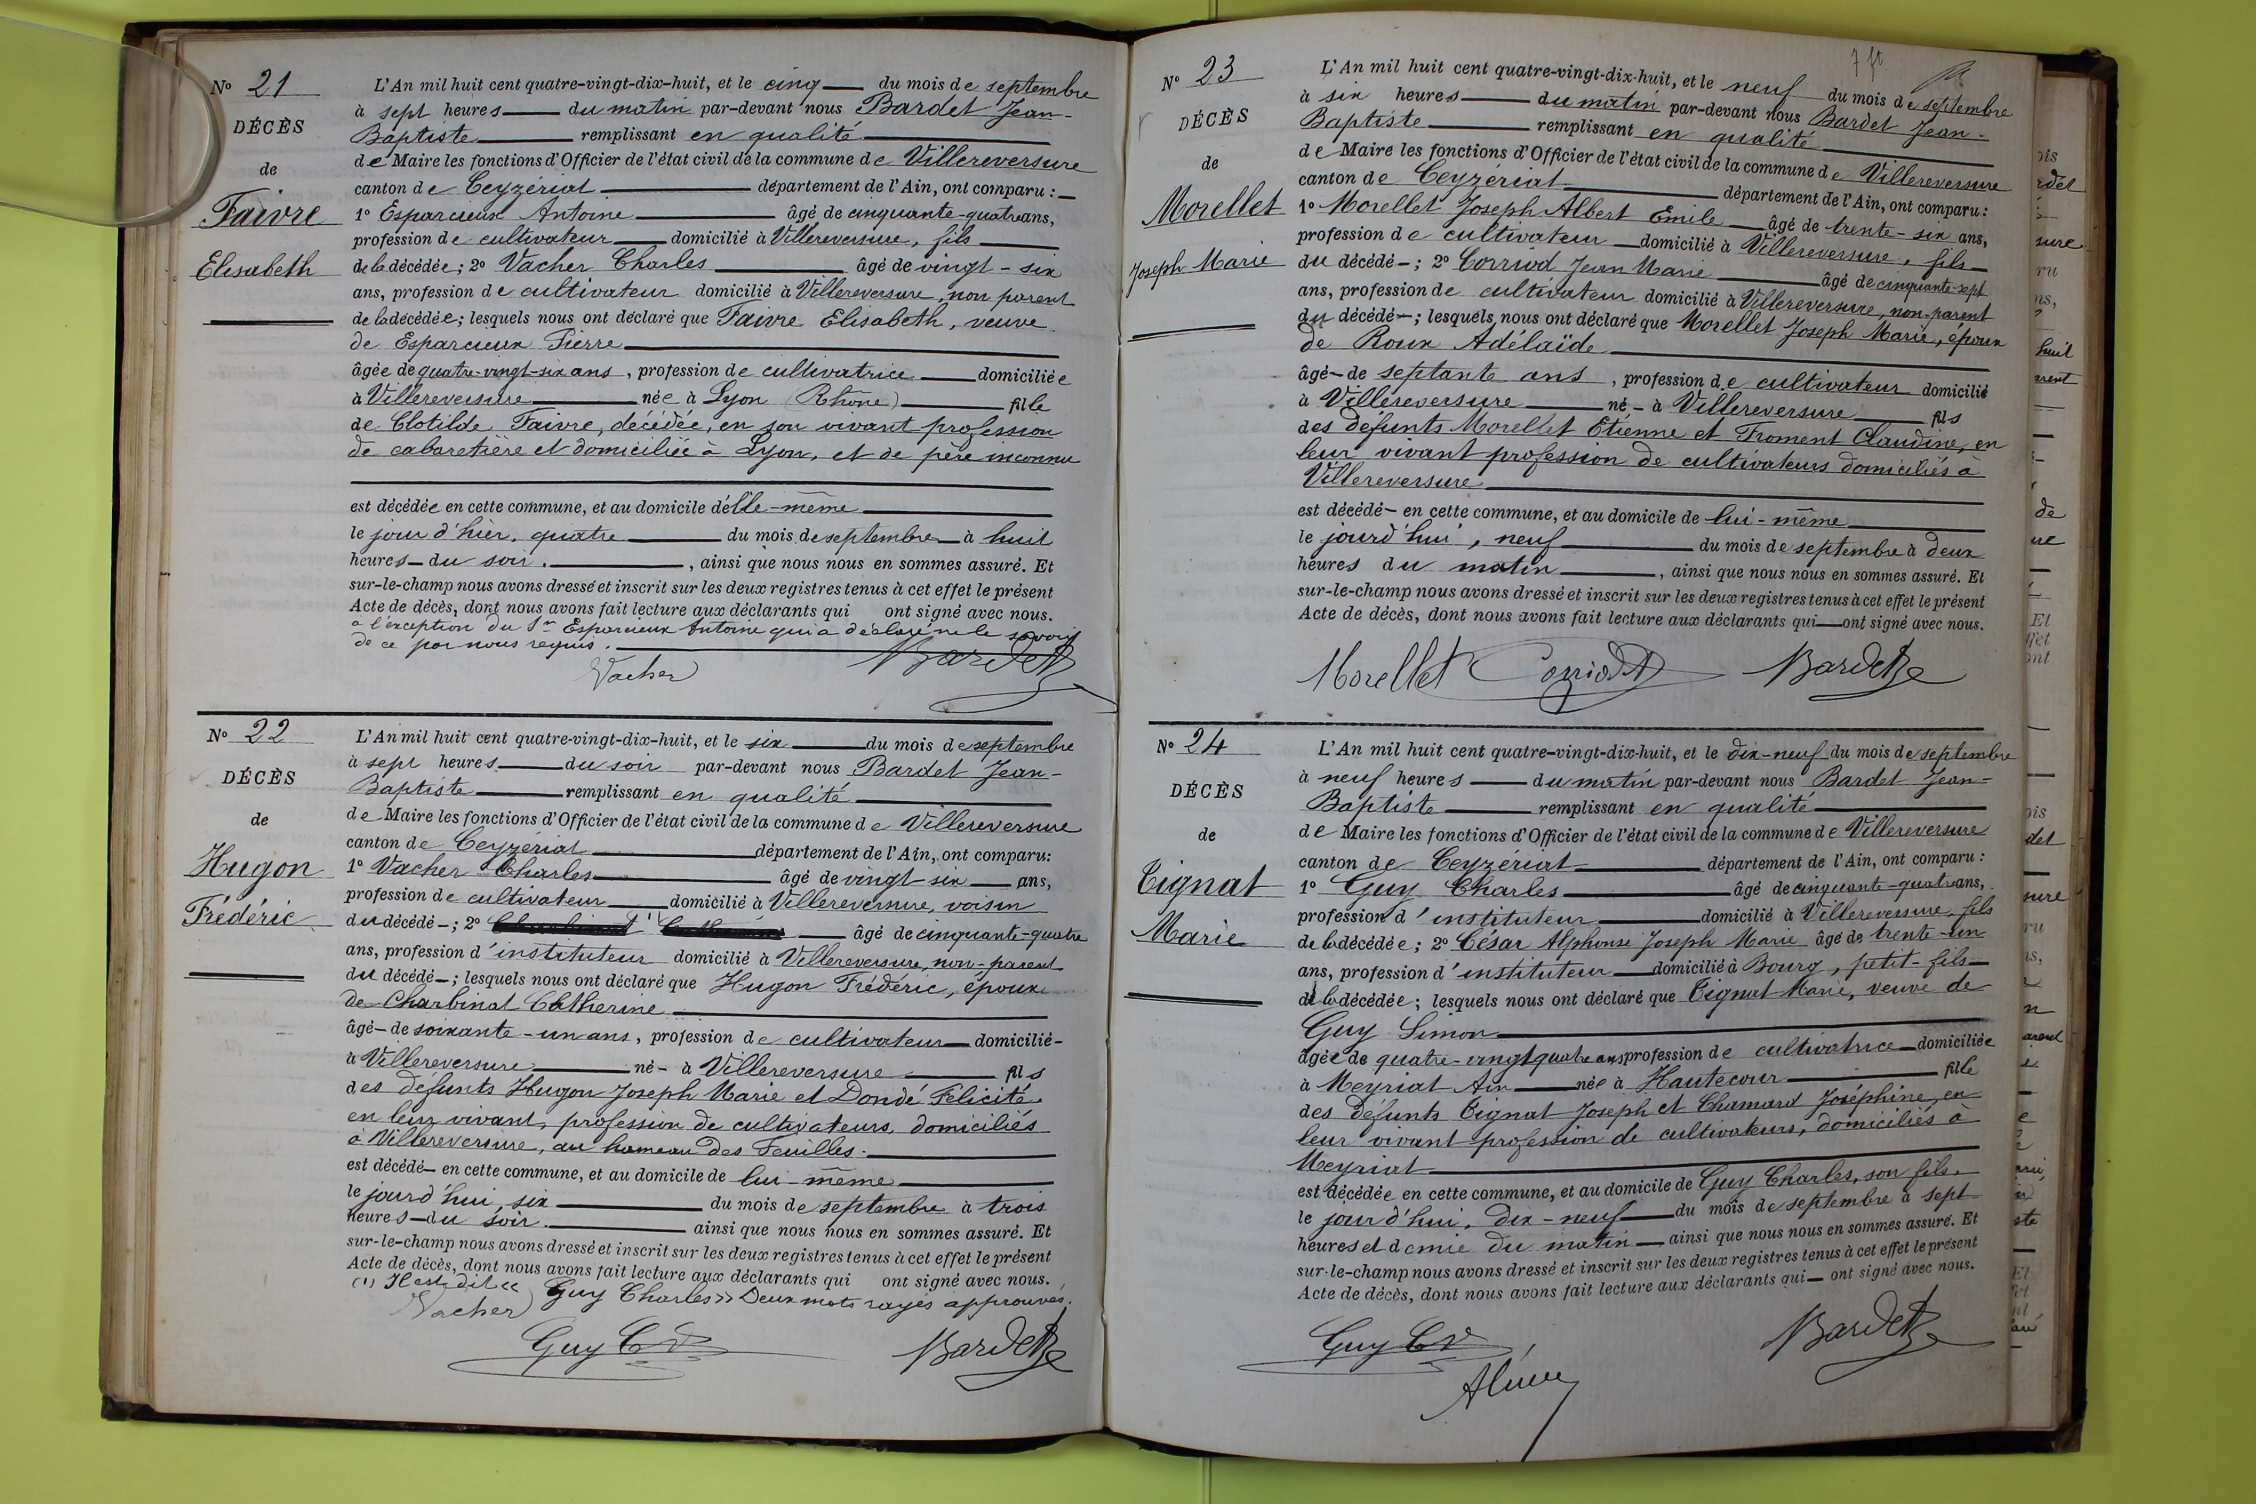 No 21
DÉCÈS
de
Faivre
Elisabeth
L'An mil huit cent quatre-vingt-dix-huit, et le cinq du mois de septembre
à sept heures du matin par-devant nous Bardet Jean-
Baptiste remplissant en qualité
de Maire les fonctions d'Officier de l'état civil de la commune de Villereversure
canton de Ceyzériat département de l'Ain, ont comparu :
1o Esparcieux Antoine âgé de cinquante-quatre ans,
profession de cultivateur domicilié à Villereversure, fils
de la décédée ; 2o Vacher Charles âgé de vingt-six
ans, profession de cultivateur domicilié à Villereversure, non parent
de la décédée ; lesquels nous ont déclaré que Faivre Elisabeth, veuve
de Esparcieux Pierre
âgée de quatre-vingt-six ans, profession de cultivatrice domiciliée
à Villereversure née à Lyon (Rhône) fille
de Clotilde Faivre, décédée, en son vivant profession
de cabaretière et domiciliée à Lyon, et de père inconnu
est décédée en cette commune, et au domicile d'elle-même
le jour d'hier, quatre du mois de septembre à huit
heures du soir, ainsi que nous nous en sommes assuré. Et
sur-le-champ nous avons dressé et inscrit sur les deux registres tenus à cet effet le présent
Acte de décès, dont nous avons fait lecture aux déclarants qui ont signé avec nous.
à l'exception du Sr Esparcieux Antoine qui a déclaré ne le savoir
de ce par nous requis.
Vacher Bardet
No 22
DÉCÈS
de
Hugon
Frédéric
L'An mil huit cent quatre-vingt-dix-huit, et le six du mois de septembre
à sept heures du soir par-devant nous Bardet Jean-
Baptiste remplissant en qualité
de Maire les fonctions d'Officier de l'état civil de la commune de Villereversure
canton de Ceyzériat département de l'Ain, ont comparu :
1o Vacher Charles âgé de vingt-six ans,
profession de cultivateur domicilié à Villereversure, voisin
du décédé ; 2o (1) âgé de cinquante-quatre
ans, profession d'instituteur domicilié à Villereversure, non-parent
du décédé ; lesquels nous ont déclaré que Hugon Frédéric, époux
de Charbinat Catherine
âgé de soixante-un ans, profession de cultivateur domicilié
à Villereversure né à Villereversure fils
des défunts Hugon Joseph Marie et Dondé Félicité
en leur vivant, profession de cultivateurs, domiciliés
à Villereversure, au hameau des Feuilles.
est décédé en cette commune, et au domicile de lui-même
le jourd'hui, six du mois de septembre à trois
heures du soir. ainsi que nous nous en sommes assuré. Et
sur-le-champ nous avons dressé et inscrit sur les deux registres tenus à cet effet le présent
Acte de décès, dont nous avons fait lecture aux déclarants qui ont signé avec nous.
(1) Il est dit « Guy Charles » Deux mots rayés approuvés.
Vacher
Guy Ch Bardet
No 23
DÉCÈS
de
Morellet
Joseph Marie
L'An mil huit cent quatre-vingt-dix-huit, et le neuf du mois de septembre
à six heures du matin par-devant nous Bardet Jean-
Baptiste remplissant en qualité
de Maire les fonctions d'Officier de l'état civil de la commune de Villereversure
canton de Ceyzériat département de l'Ain, ont comparu :
1o Morellet Joseph Albert Emile âgé de trente-six ans,
profession de cultivateur domicilié à Villereversure, fils
du décédé ; 2o Corriod Jean Marie âgé de cinquante-sept
ans, profession de cultivateur domicilié à Villereversure, non-parent
du décédé ; lesquels nous ont déclaré que Morellet Joseph Marie, époux
de Roux Adélaïde
âgé de septante ans, profession de cultivateur domicilié
à Villereversure né à Villereversure fils
des défunts Morellet Etienne et Froment Claudine, en
leur vivant profession de cultivateurs domiciliés à
Villereversure
est décédé en cette commune, et au domicile de lui-même
le jourd'hui, neuf du mois de septembre à deux
heures du matin, ainsi que nous nous en sommes assuré. Et
sur-le-champ nous avons dressé et inscrit sur les deux registres tenus à cet effet le présent
Acte de décès, dont nous avons fait lecture aux déclarants qui ont signé avec nous.
Morellet Corriod Bardet
No 24
DÉCÈS
de
Tignat
Marie
L'An mil huit cent quatre-vingt-dix-huit, et le dix-neuf du mois de septembre
à neuf heures du matin par-devant nous Bardet Jean-
Baptiste remplissant en qualité
de Maire les fonctions d'Officier de l'état civil de la commune de Villereversure
canton de Ceyzériat département de l'Ain, ont comparu :
1o Guy Charles âgé de cinquante-quatre ans,
profession d'instituteur domicilié à Villereversure, fils
de la décédée ; 2o César Alphonse Joseph Marie âgé de trente-un
ans, profession d'instituteur domicilié à Bourg, petit-fils
de la décédée ; lesquels nous ont déclaré que Tignat Marie, veuve de
Guy Simon
âgée de quatre-vingt quatre ans profession de cultivatrice domiciliée
à Meyriat Ain née à Hautecour fille
des défunts Tignat Joseph et Chamard Joséphine, en
leur vivant profession de cultivateurs, domiciliés à
Meyriat
est décédée en cette commune, et au domicile de Guy Charles, son fils.
le jourd'hui, dix-neuf du mois de septembre à sept
heures et demie du matin ainsi que nous nous en sommes assuré. Et
sur-le-champ nous avons dressé et inscrit sur les deux registres tenus à cet effet le présent
Acte de décès, dont nous avons fait lecture aux déclarants qui ont signé avec nous.
Guy Ch Bardet